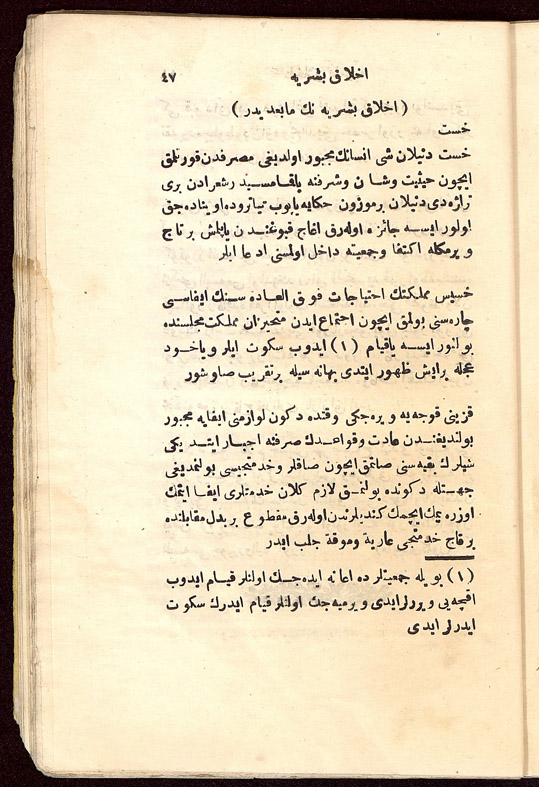 اخلاق بشریه ٤٧
( اخلاق بشریه نك مابعدیدر )
خست
خست دنیلان شی انسانك مجبور اولدیغی مصرفدن قورتلمق
ایچون حیثیت وشان وشرفنه یاقامسیدر شعرادن بری
تراژه دی دنیلان برموزون حکایه یاپوب تیاتروده اویناده جق
اولور ایسه جائزه اوله رق اغاج قبوغندن یاپلمش بر تاج
ویرمکله اکتفا وجمعیته داخل اولمسنی ادعا ایلر
خسیس مملکتك احتیاجات فوق العاده سنك ایفاسی
چاره سنی بولمق ایچون اجتماع ایدن متحیزان مملکت مجلسنده
بولنور ایسه یاقیام (١) ایدوب سکوت ایلر ویاخود
عجله برایش ظهور ایتدی بهانه سیله برتقریب صاوشور
قزینی قوجه یه ویره جکی وقتده دکون لوازمنی ایفایه مجبور
بولندیغندن عادت وقواعدك صرفنه اجبار ایتدیکی
شیلرك بقیه سنی صاتمق ایچون صاقلار وخدمتجیسی بولنمدیغی
جهتله دکونده بولنمق لازم کلان خدمتلری ایفا ایتمك
اوزره یمك ایچمك کندیلرندن اوله رق مقطوع بر بدل مقابلنده
برقاج خدمتجی عاریة وموقة جلب ایدر
(١) بویله جمعیتلرده اعانه ایده جك اولنلر قیام ایدوب
اقچه یی ویررلر ایدی ویرمیه جك اولنلر قیام ایدرك سکوت
ایدرلر ایدی